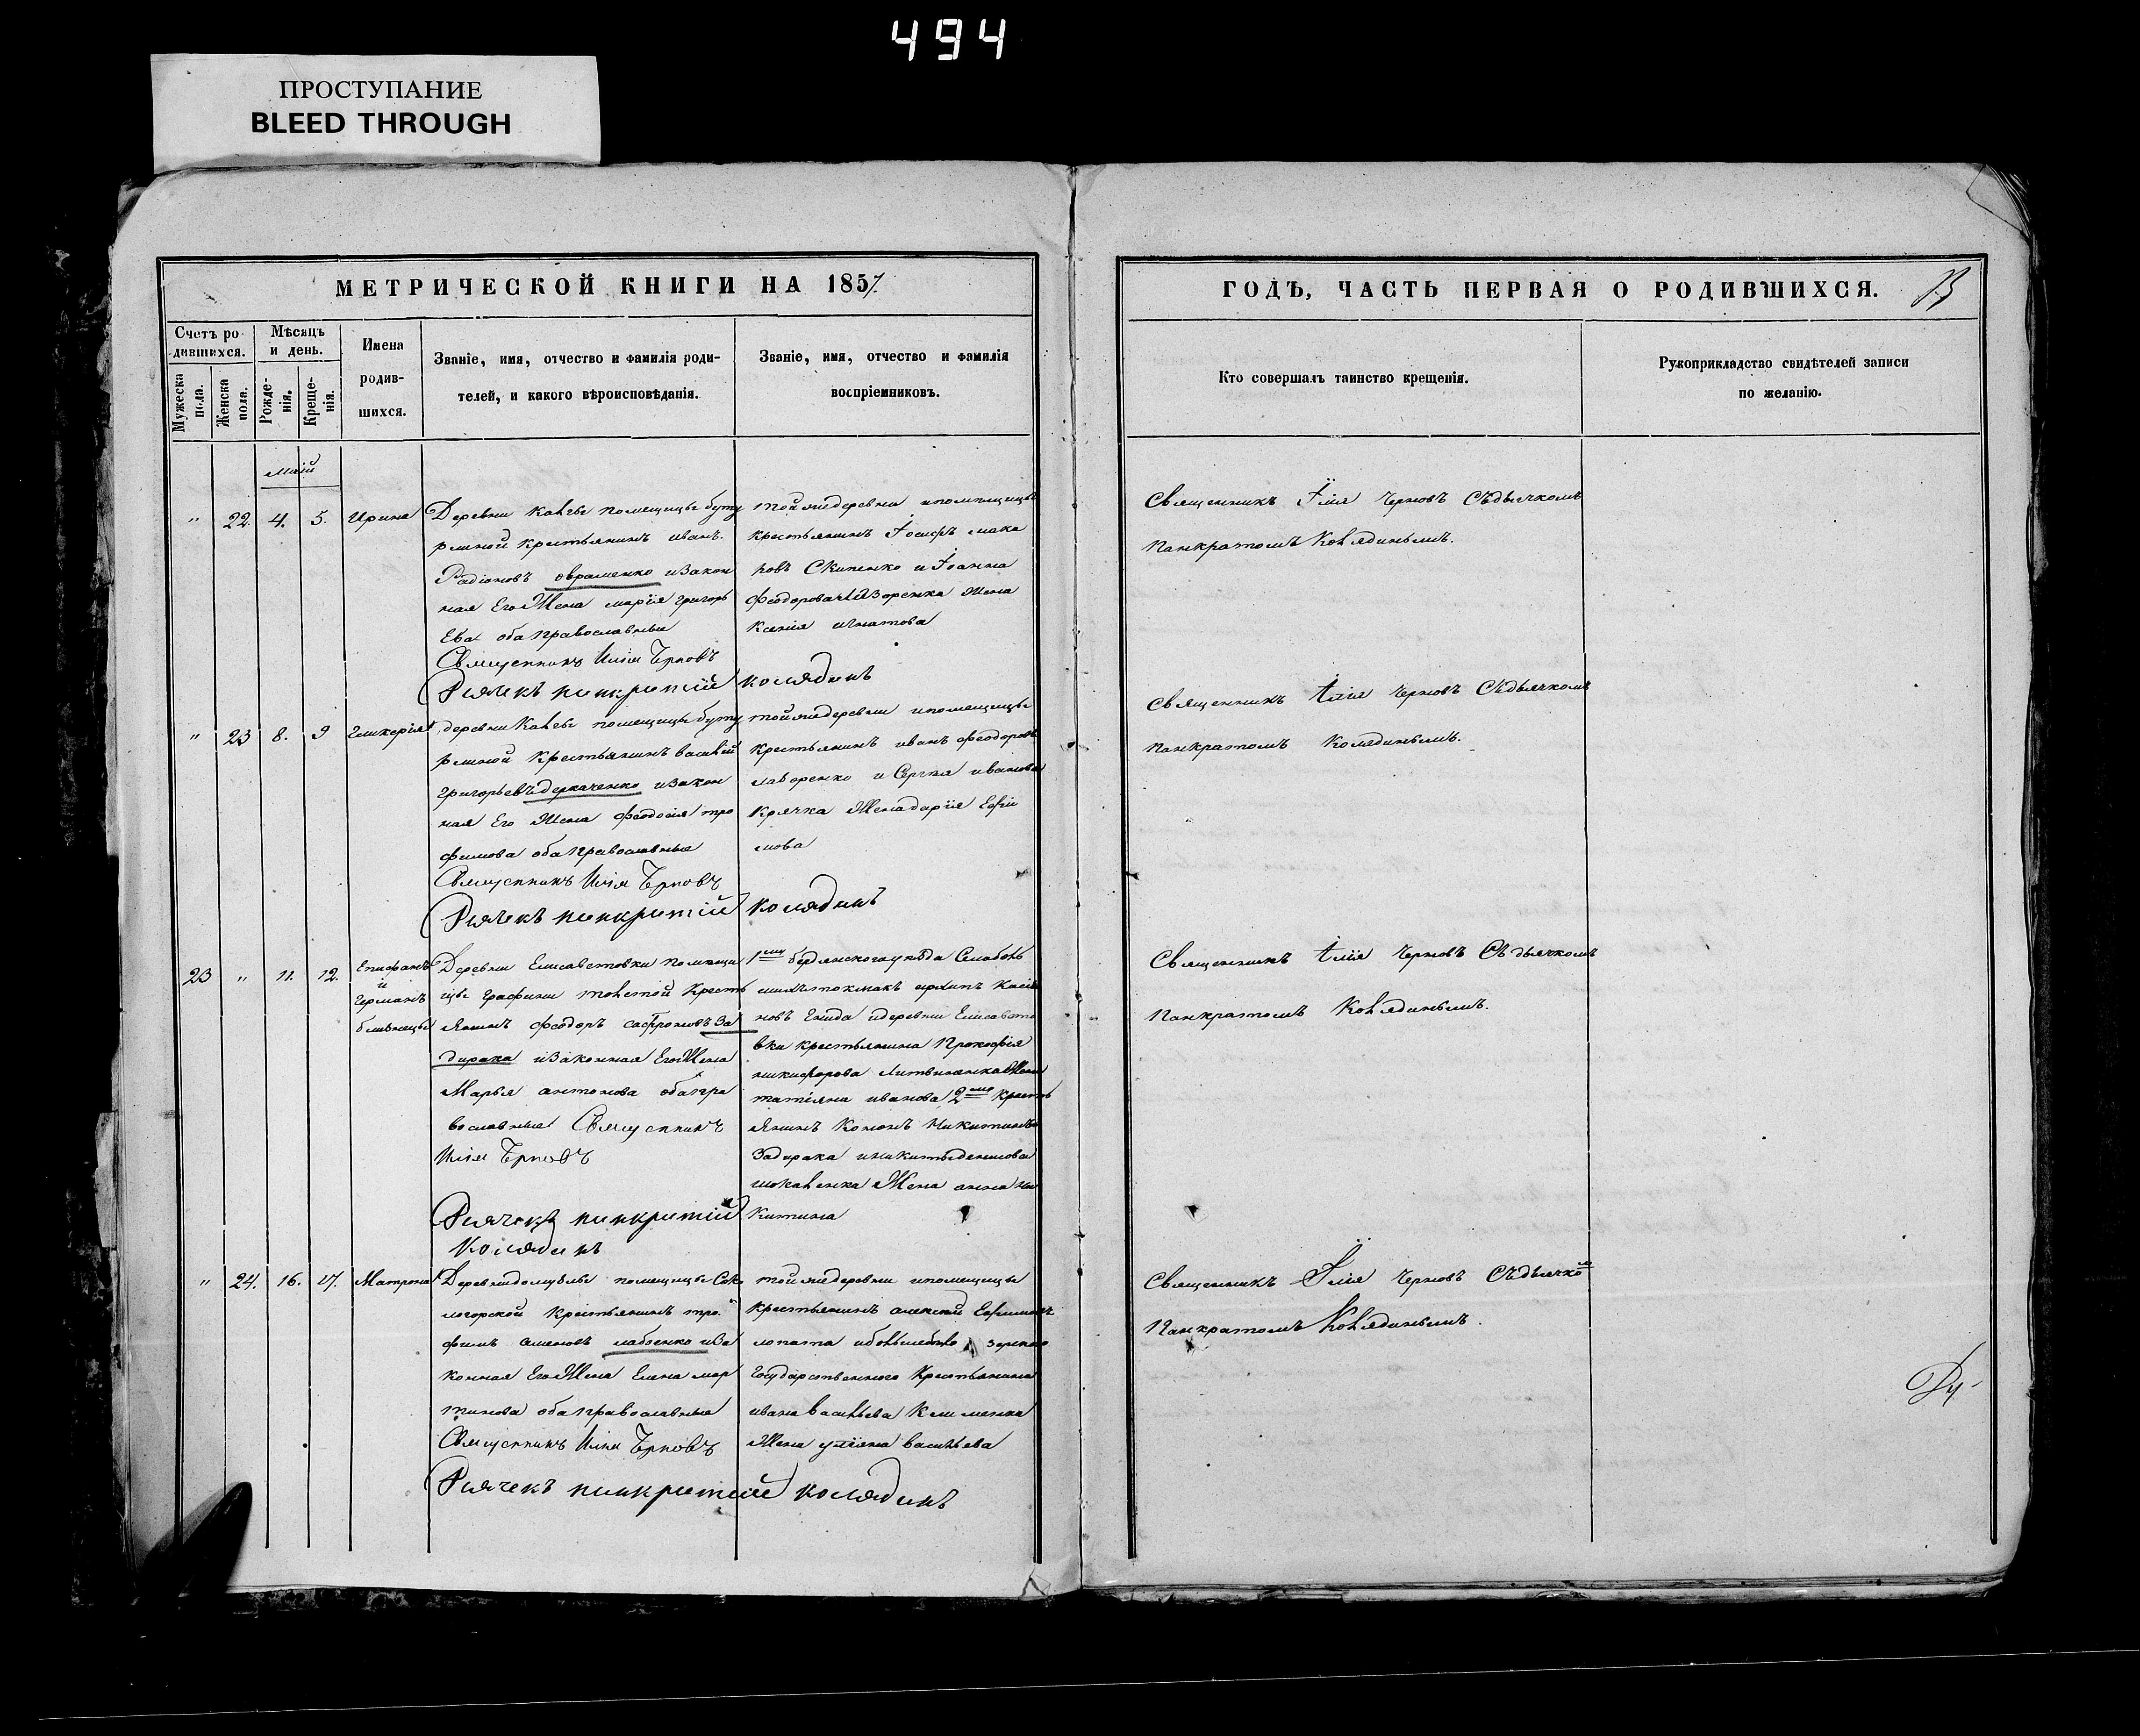 494
ПРОСТУПАНИЕ
BLEED THROUGH
МЕТРИЧЕСКОЙ КНИГИ НА 1857.
Счетъ родившихся.
Мужеска пола.
Женска пола.
Мѣсяцъ и день.
Рожденія.
Крещенія.
Имена родившихся.
Званіе, имя, отчество и фамилія роди-
телей, и какого вѣроисповѣданія.
Званіе, имя, отчество и фамилія
воспріемниковъ.
ГОДЪ, ЧАСТЬ ПЕРВАЯ О РОДИВШИХСЯ.
Кто совершалъ таинство крещенія.
Рукоприкладство свидѣтелей записи
по желанію.
Маій
" 22. 4. 5. Ирина
Деревни помещицы Буту
рлиной крестьянинъ иванъ
Радіоновъ овраменко изакон
ная Его Жена марія григорь
Ева оба православные
Священникъ Илія Черновъ
Дьячекъ панкратій колядинъ
тойжедеревни ипомещицы
крестьянинъ Іосифъ мака
ровъ Скипенко и Іоанна
Феодорова Жена
Ксенія игнатова
Священникъ Илія Черновъ Съдьячкомъ
Панкратомъ Колядинымъ.
" 23 8. 9 Гликерія
деревни помещицы буту
рлиной Крестьянинъ василій
григорьевъ деркаченко изакон
ная Его Жена Феодосія тро
фимова оба православные
Священникъ Илія Черновъ
Дьячекъ панкратій колядинъ
тойжедеревни ипомещицы
Крестьянинъ иванъ феодоровъ
лазоренко и Сергѣя иванова
Крячка Жена дарія Ефи
мова
Священникъ Илія Черновъ Съдьячкомъ
Панкратомъ Колядинымъ.
23 " 11. 12. Епифанъ
и
Германъ
близнецы
Деревни Елисаветовки помещи
цы Графини толстой Кресть
янинъ Феодоръ Сафроновъ За
дирака изаконная Его Жена
Марья антонова оба пра
вославные Священникъ
Илія Черновъ
Дьячекъ панкратій
Колядинъ
1го бердянскогауѣзда
токмакъ
новъ Гнида идеревни Елисавето
вки крестьянина Прокофія
никифорова Литвиненка Жена
татіяна иванова, 2го кресть
янинъ Кононъ Никитинъ
Задирака иникиты денисова
Жена анна ни
китина
Священникъ Илія Черновъ Съдьячкомъ
Панкратомъ Колядинымъ.
" 24. 16. 17. Матрона
помещицы Сако
логорской крестьянинъ тро
фимъ Семеновъ изa
конная Его Жена Елена мар
тинова оба православные
Священникъ Илія Черновъ
Дьячекъ панкратій колядинъ
тойжедеревни ипомещицы
крестьянинъ алексѣй Ефимовъ
лопата
Государственного Крестьянина
ивана васильева Клименка
Жена уліяна васильева
Священникъ Илія Черновъ Съдьячком
Панкратомъ Колядинымъ.